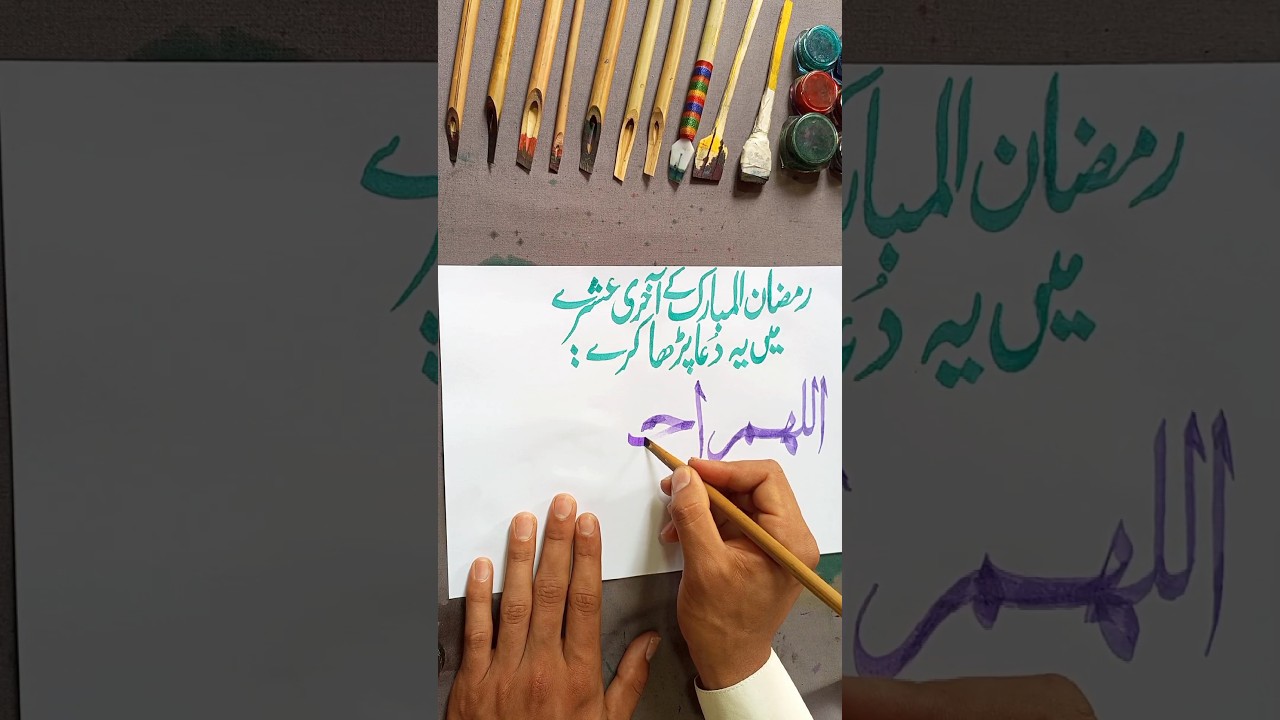 رمضان المبارک کے آخری عشرے
میں یہ دُعا پڑھا کرے :
اللهم احـ